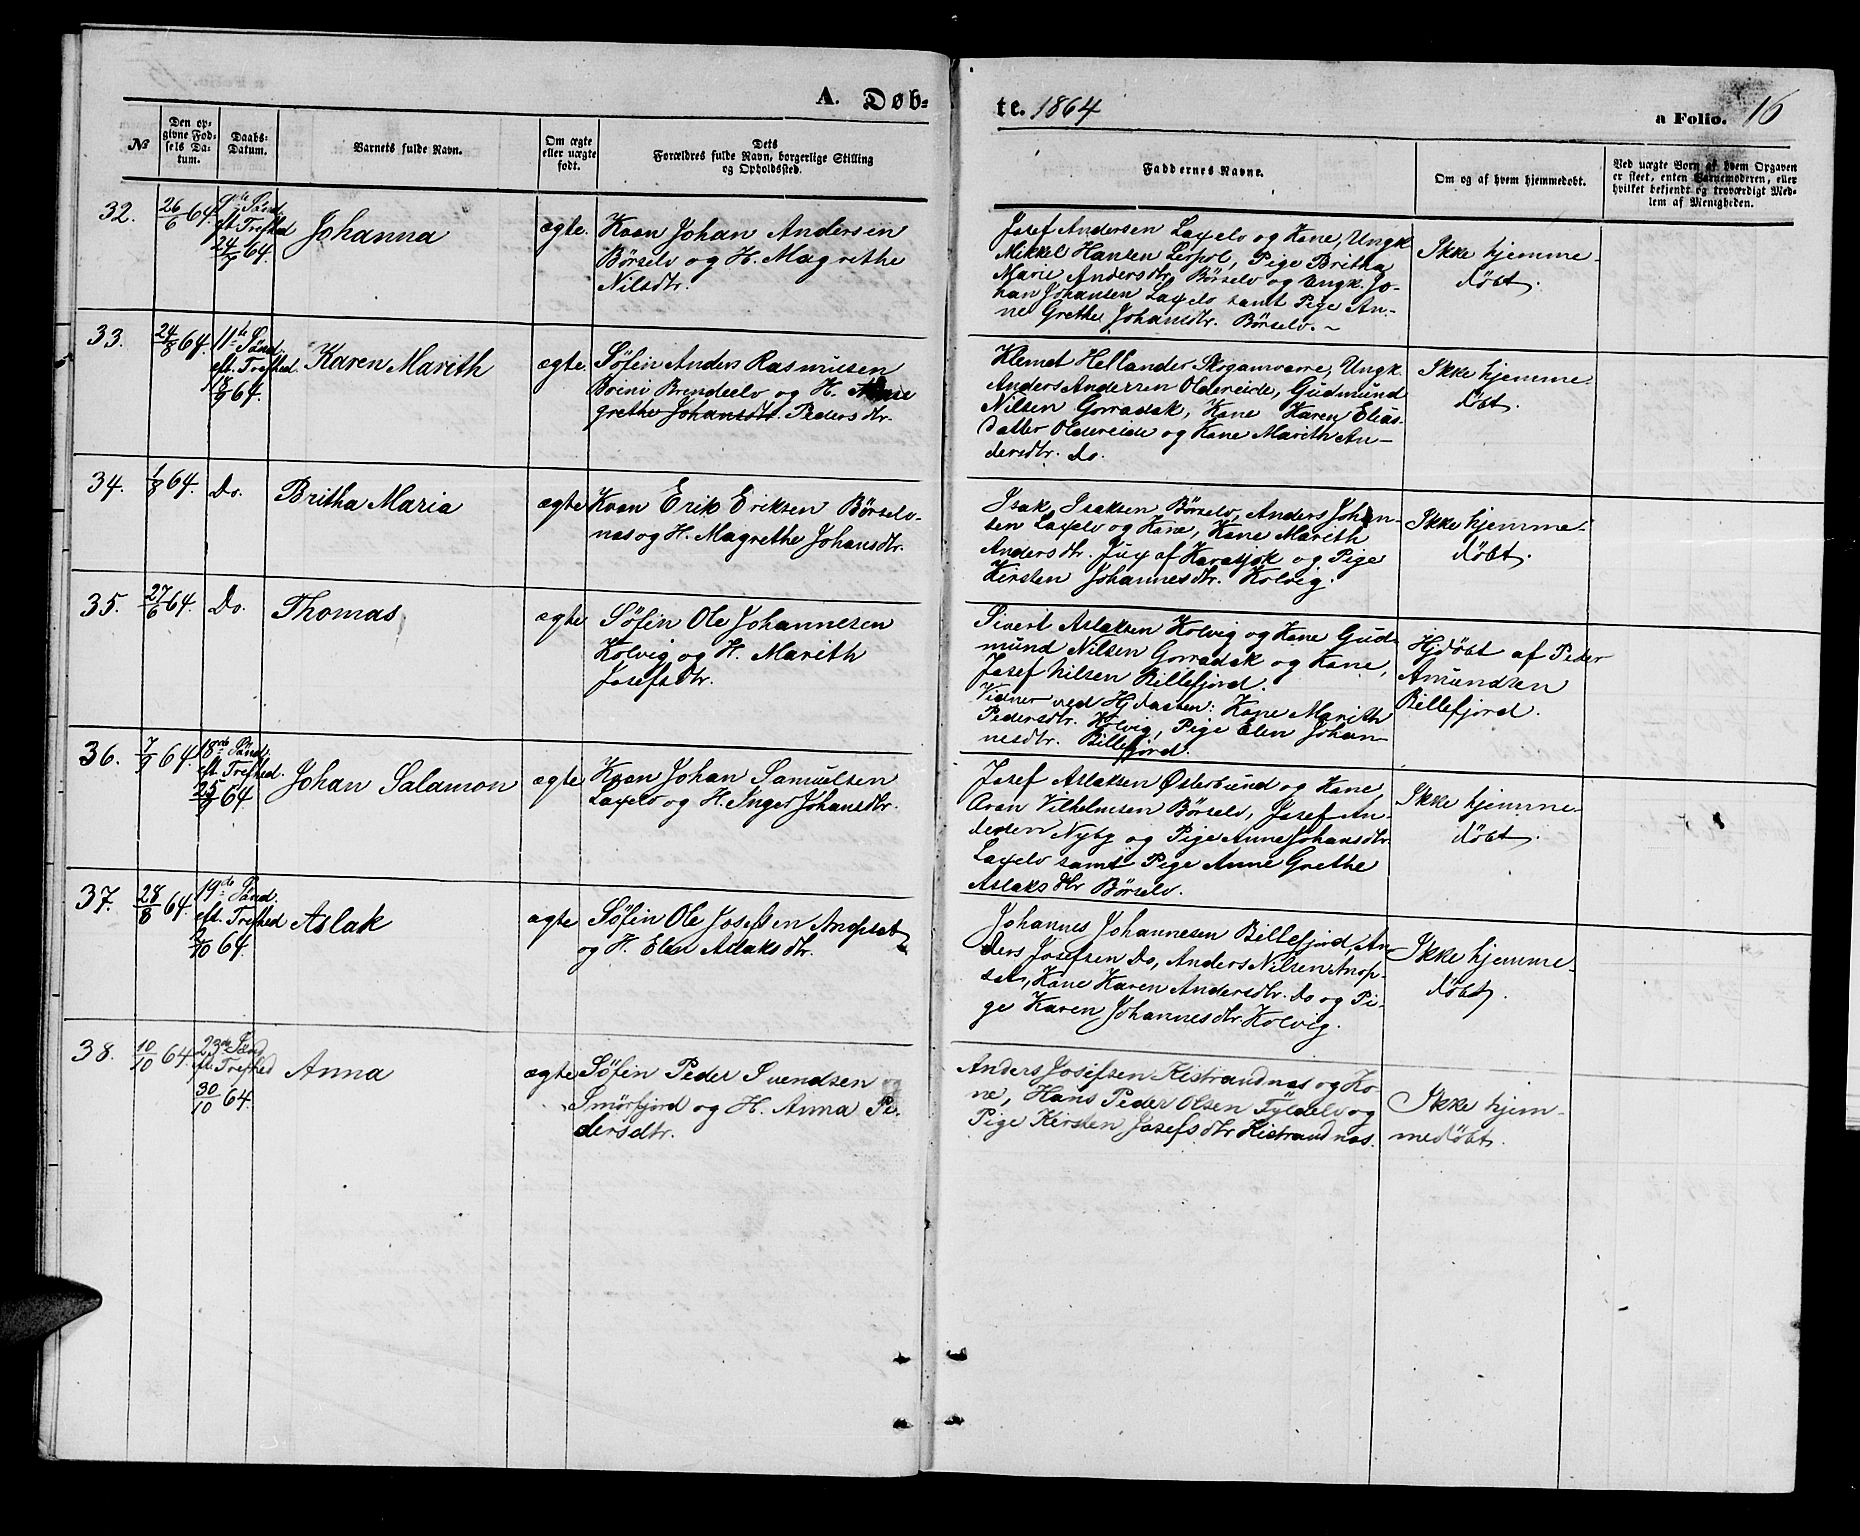 A. Døb=
te. 1864
a Folio. 16
No
Den op=
givne Fød=
sels Da=
tum.
Daabs=
Datum.
Barnets fulde Navn.
Om ægte
eller uægte
født.
Dets
Forældres fulde Navn, borgerlige Stilling
og Opholdssted.
Faddernes Navne.
Om og af hvem hjemmedøbt.
Ved uægte Born af hvem Opgaven
er skeet, enten Barnemoderen, eller
hvilket bekjendt og troværdigt Med=
lem af Menigheden.
32.
26/6 64.
9de Sönd.
eft. Trefhed
24/7 64.
Johanna
ægte.
Kvan Johan Andersen
Börselv og H. Magrethe
Nilsdtr.
Josef Andersen Laxelv og Kone, Ungk.
Mikkel Hansen Leirpol, Pige Britha
Marie Andersdtr. Börselv og Ungk. Jo-
han Johansen Laxelv samt Pige An-
ne Grethe Johansdtr. Börselv. -
Ikke hjemme-
döbt.
33.
24/8 64.
11te Sönd.
eft. Trefhed.
18/9 64.
Karen Marith
ægte.
Söfin Anders Rasmusen
Brini Brendeelv og H. Ane
grethe Johansdtr. Pedersdtr.
Klemet Hellander Skoganvarre, Ungk.
Anders Andersen Oldereide, Gudmund
Nilsen Gorradak, Kone Karen Elias-
datter Oldereide og Kone Marith An-
dersdtr. do.
Ikke hjemme-
döbt.
34.
1/8 64.
Do.
Britha Maria
ægte
Kvan Erik Eriksen Börselv-
næs og H. Magrethe Johansdtr.
Isak Isaksen Börselv, Anders Johan-
sen Laxelv og Kone, Kone Marith
Andersdtr. Jux af Karasjok og Pige
Kirsten Johannesdtr. Kolvig.
Ikke hjemme-
döbt.
35.
27/6 64.
Do.
Thomas
ægte
Söfin Ole Johannesen
Kolvig og H. Marith
Josefsdtr.
Sivert Aslaksen Kolvig og Kone Gud-
mund Nilsen Gorradak og Kone,
Josef Nilsen Billefjord.
Vidner ved Hjdaaben: Kone Marith
Pedersdtr. Kolvig, Pige Elen Johan-
nesdtr. Billefjord.
Hjdöbt af Peder
Amundsen
Billefjord.
36.
7/9 64.
18de Sönd.
eft. Trefhed.
25/9 64
Johan Salamon
ægte
Kvan Johan Samuelsen
Laxelv og H. Inger Johansdtr.
Josef Aslaksen Österbund og Kone,
Aron Vilhelmsen Börselv, Josef An-
dersen Nyby og Pige Anne Johansdtr.
Laxelv samt Pige Anne Grethe
Aslaksdtr Börselv.
Ikke hjemme-
döbt.
37.
28/8 64.
19de Sönd.
eft. Trefhed
2/10 64.
Aslak
ægte
Söfin Ole Josefsen Anopset
og H. Elen Aslaksdtr.
Johannes Johannesen Billefjord, An-
ders Josefsen Do, Anders Nilsen Anop-
set, Kone Karen Andersdtr. do og Pi-
ge Karen Johannesdtr. Kolvig.
Ikke hjemme-
döbt.
38.
10/10 64
23de Sönd
eft. Trefhed
30/10 64.
Anna
ægte
Söfin Peder Svendsen
Smörfjord og H. Anna Pe-
dersdtr.
Anders Josefsen Kistrandnæs og Ko-
ne, Hans Peder Olsen Fyldelv og
Pige Kirsten Josefsdtr Kistrandnæs.
Ikke hjem-
medöbt.